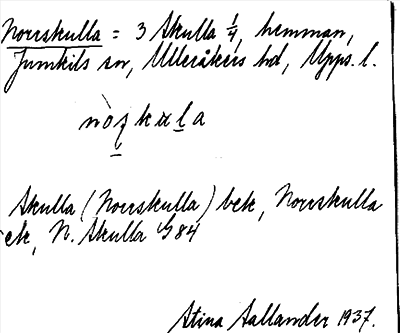 Norrskulla = 3 Skulla 1/4, hemman,
Jumkils sn, Ulleråkers hd, Upps. l.
Skulla (Norrskulla) bek, Norrskulla
ek, N. Skulla G 84
Stina Aallander 1937.